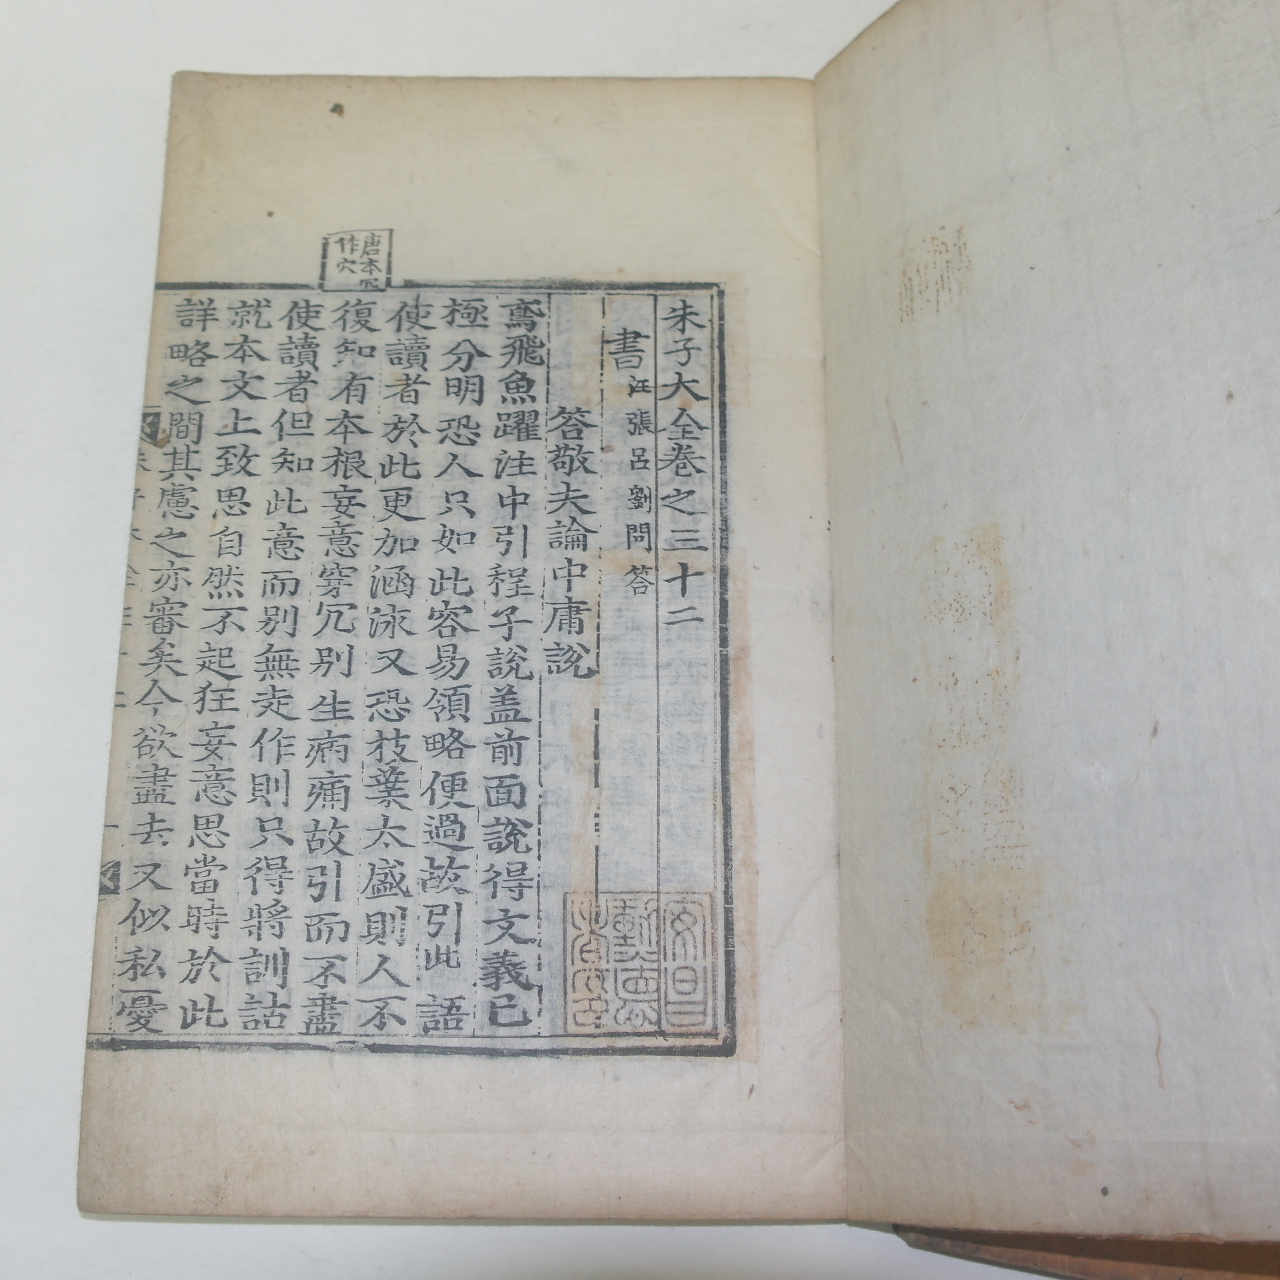 朱子大全卷之三十二
書汪張呂劉問答
答敬夫論中庸說
鳶飛魚躍注中引程子說盖前面說得文義已
極分明恐人只如此容易領略便過故引此語
使讀者於此更加涵泳又恐枝葉太盛則人不
復知有本根妄意穿冗別生病痛故引而不盡
使讀者但知此意而别無走作則只得將訓詁
就本文上致思自然不起狂妄意思當時於此
詳略之間其慮之亦審矣今欲盡去又似私憂
唐本冗
作穴